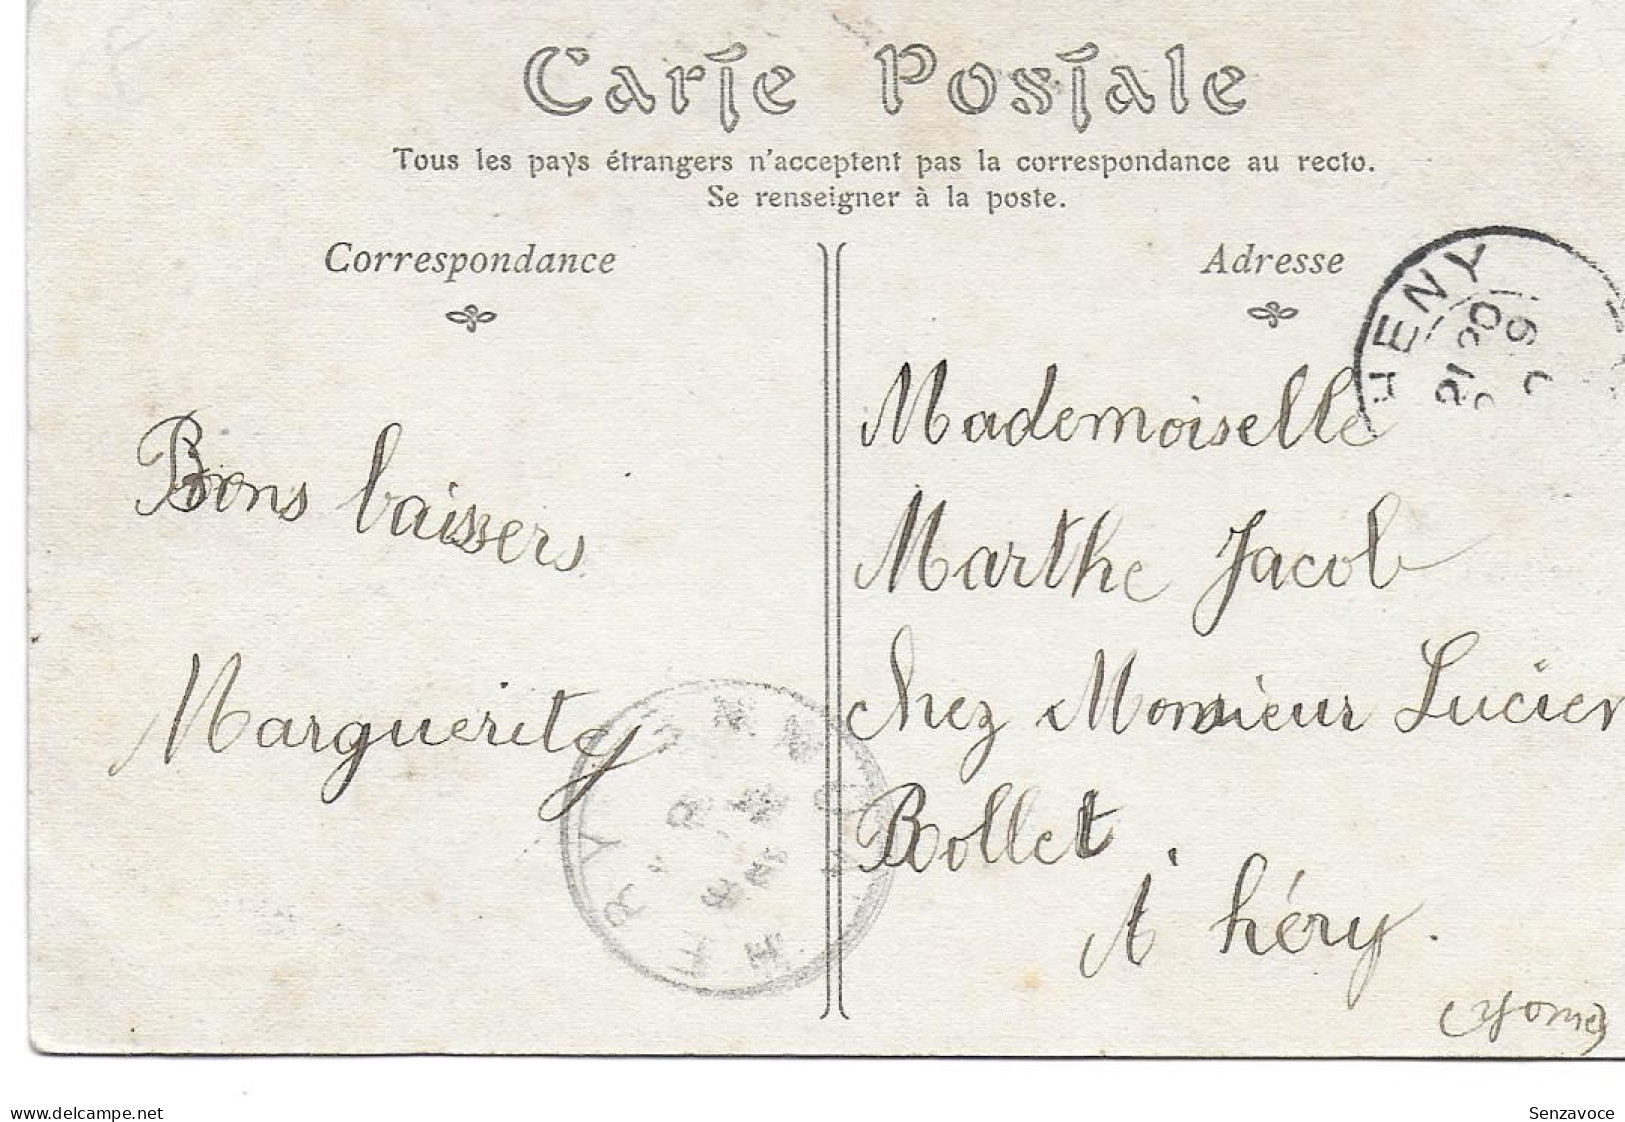 Carte Postale
Tous les pays étrangers n'acceptent pas la correspondance au recto.
Se renseigner à la poste.
Correspondance
Adresse
HENY
Bons baissers
Marguerite
Mademoiselle
Marthe Jacob
chez Monsieur Lucien
Rollet
A héry.
(Yonne)
HERY
www.delcampe.net
Senzavoce